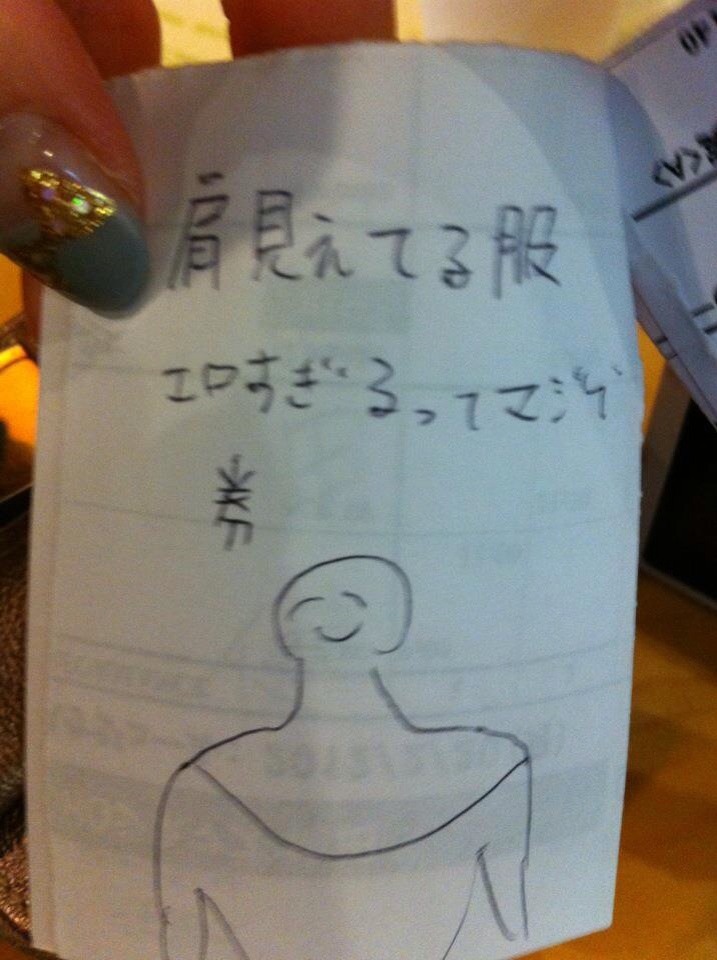 肩見えてる服
エロすぎるってマジデ
券